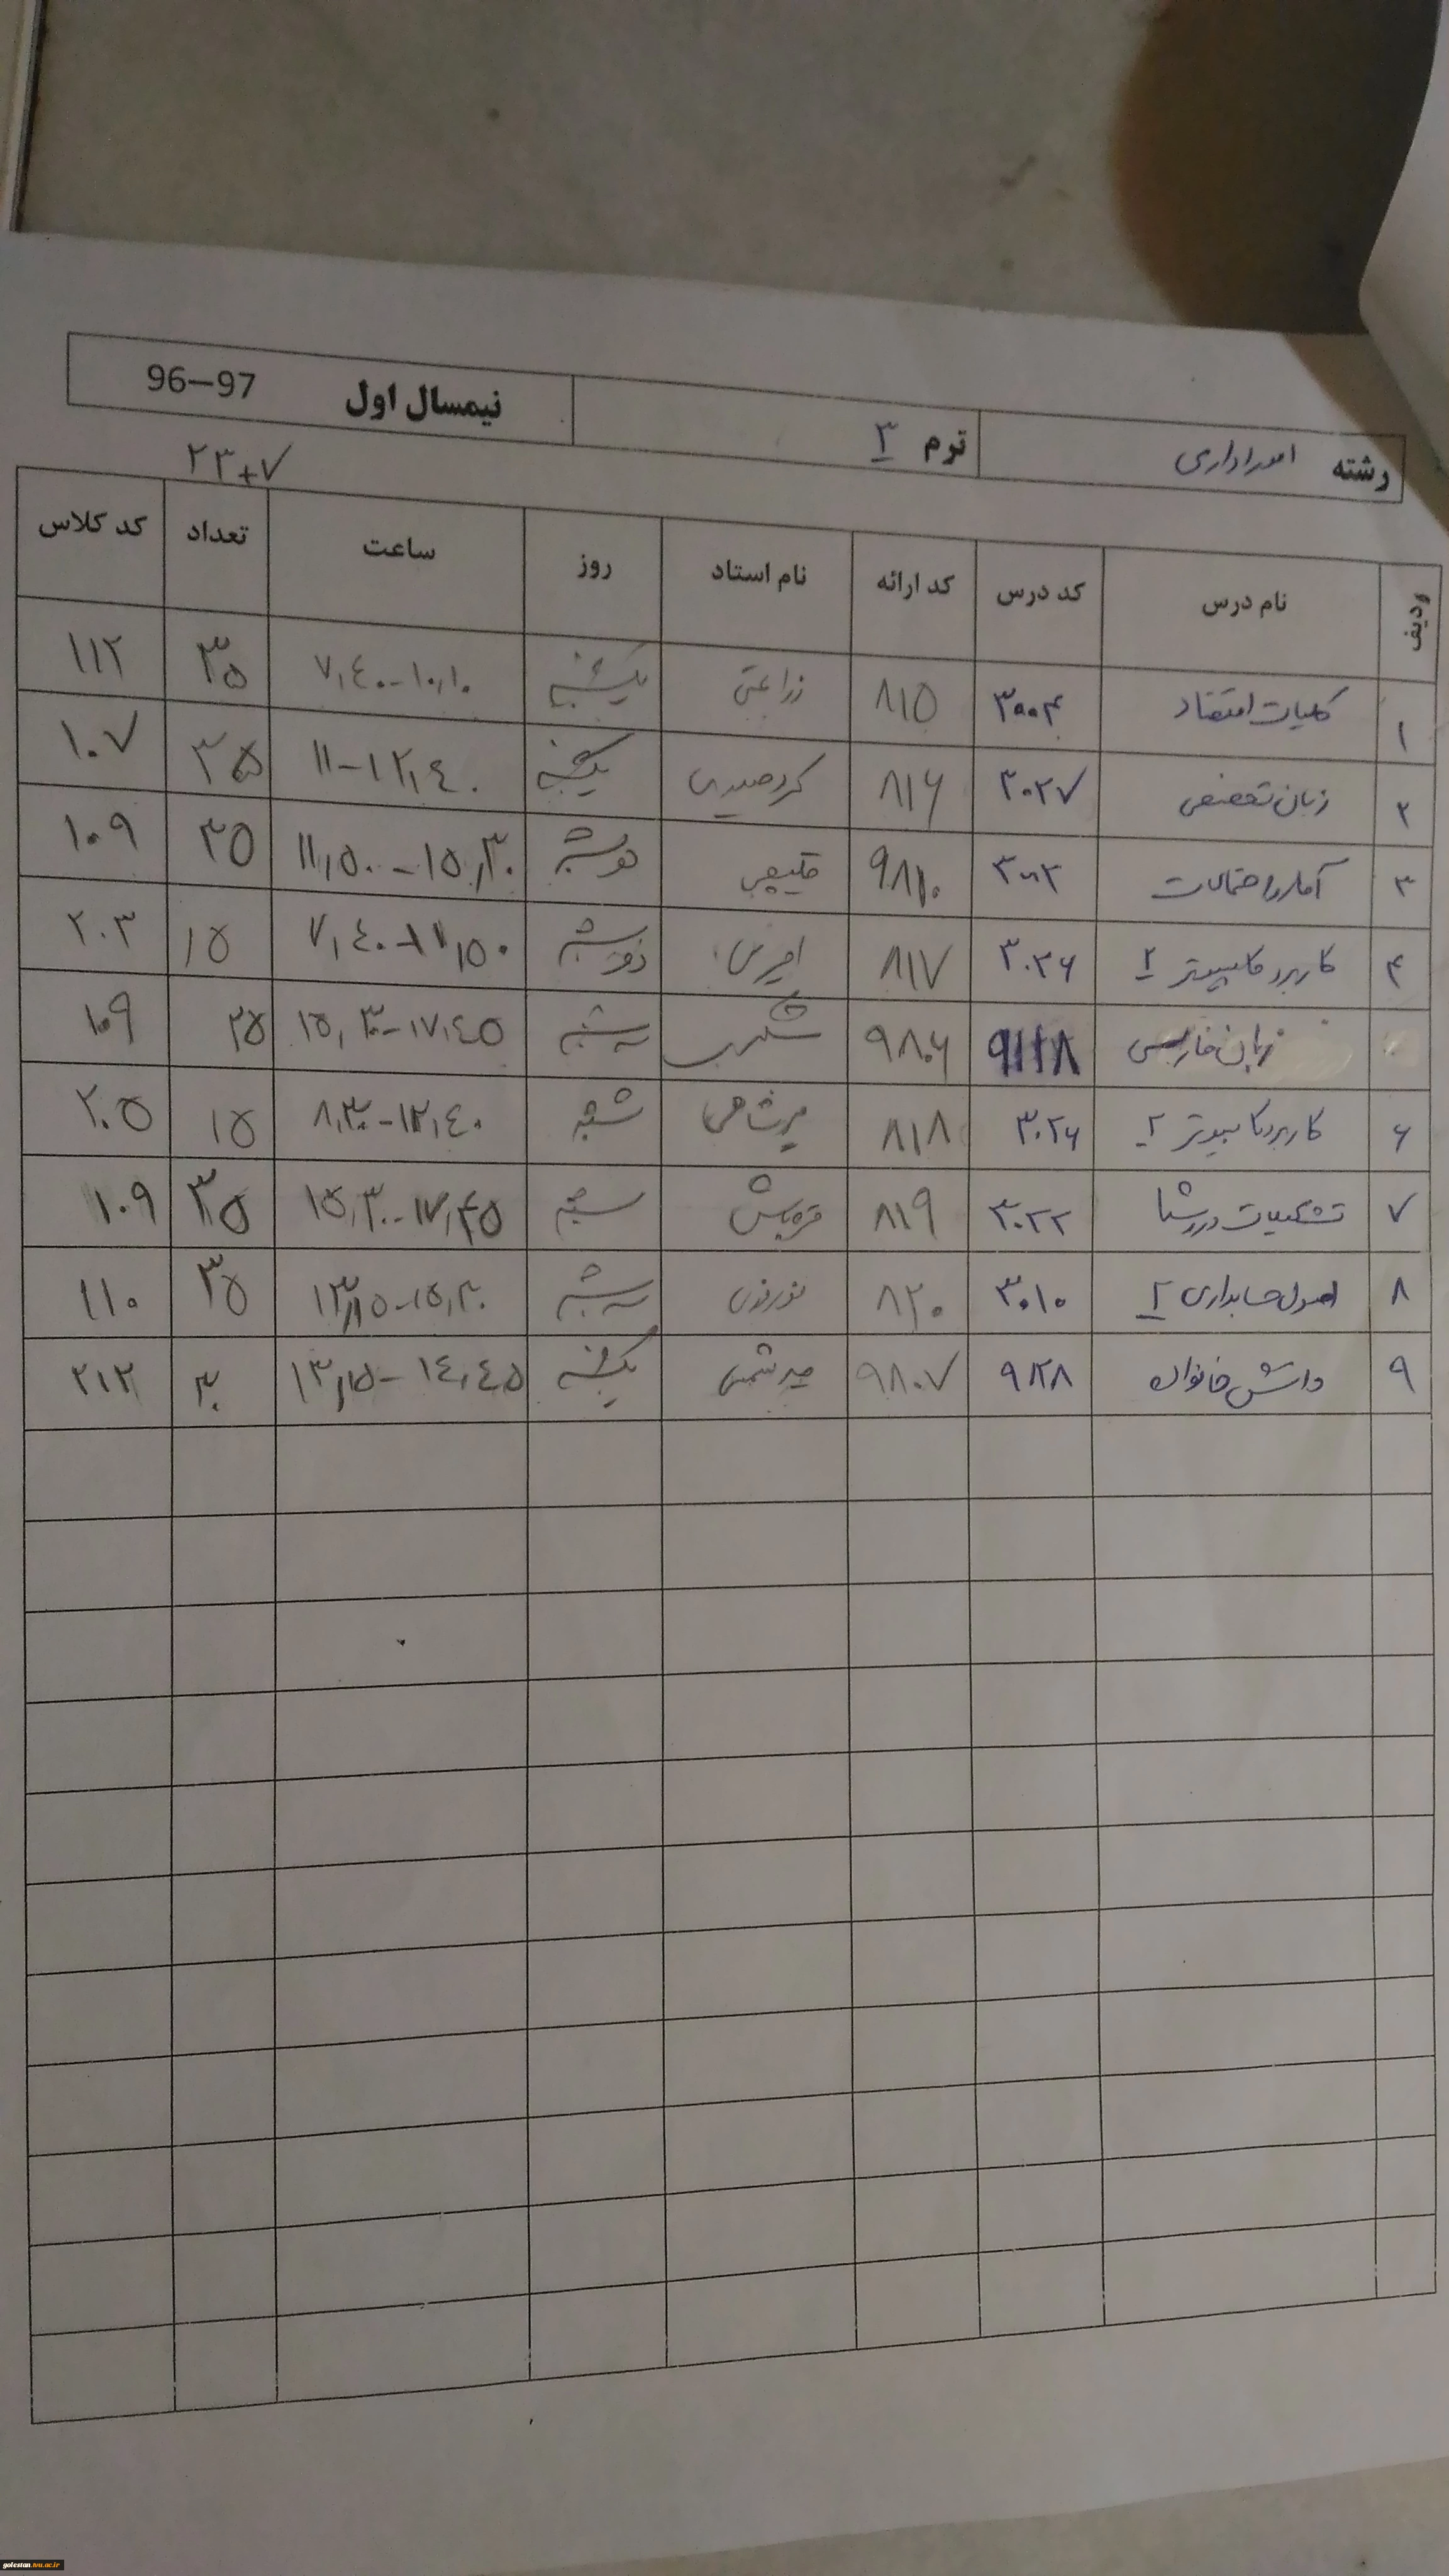 رشته امور اداری ترم ۳ نیمسال اول 96–97
۲۳+۷
ردیف نام درس کد درس کد ارائه نام استاد روز ساعت تعداد کد کلاس
۱ کلیات اقتصاد ۳۰۰۴ ۸۱۵ زراعتی یکشنبه ۷,۴۰-۱۰,۱۰ ۳۵ ۱۱۲
۲ زبان تخصصی ۳۰۲۷ ۸۱۶ یکشنبه ۱۱-۱۲,۴۰ ۳۵ ۱۰۷
۳ آمار و احتمالات ۳۰۰۳ ۹۸۱۰ دوشنبه ۱۱,۵۰-۱۵,۳۰ ۳۵ ۱۰۹
۴ کاربرد کامپیوتر ۲ ۳۰۲۶ ۸۱۷ دوشنبه ۷,۴۰-۱۱,۵۰ ۱۵ ۲۰۳
زبان فارسی ۹۸۰۶ سه‌شنبه ۱۵,۳۰-۱۷,۴۵ ۲۵ ۱۰۹
۶ کاربرد کامپیوتر ۲ ۳۰۲۶ ۸۱۸ شنبه ۸,۳۰-۱۲,۴۰ ۱۵ ۲۰۵
۷ تشکیلات و روشها ۳۰۲۲ ۸۱۹ ۱۵,۳۰-۱۷,۴۵ ۳۵ ۱۰۹
۸ اصول حسابداری ۲ ۳۰۱۰ ۸۲۰ سه‌شنبه ۱۳,۱۵-۱۵,۳۰ ۳۵ ۱۱۰
۹ دانش خانواده ۹۱۲۸ ۹۸۰۷ یکشنبه ۱۳,۱۵-۱۴,۴۵ ۳۰ ۲۱۲
golestan.tvu.ac.ir